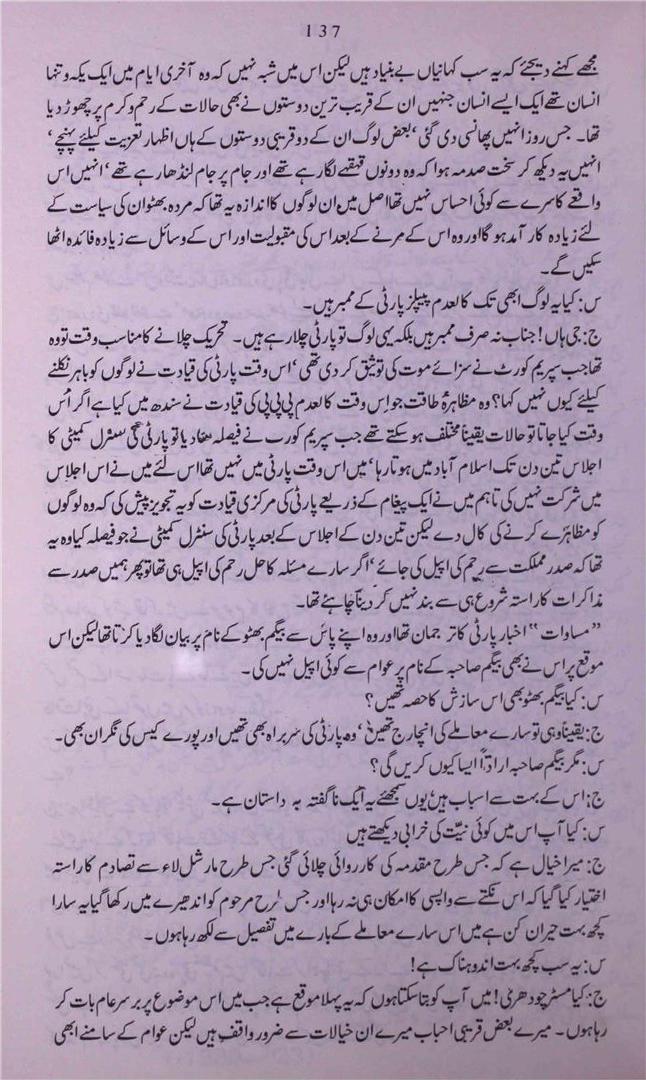 137
مجھے کہنے دیجئے کہ یہ سب کہانیاں بے بنیاد ہیں لیکن اس میں شبہ نہیں کہ وہ آخری ایام میں ایک یکہ و تنہا
انسان تھے ایک ایسے انسان جنہیں ان کے قریب ترین دوستوں نے بھی حالات کے رحم و کرم پر چھوڑ دیا
تھا۔ جس روز انہیں پھانسی دی گئی ‘ بعض لوگ ان کے دو قریبی دوستوں کے ہاں اظہار تعزیت کیلئے پہنچے ‘
انہیں یہ دیکھ کر سخت صدمہ ہوا کہ وہ دونوں قہقہے لگا رہے تھے اور جام پر جام لنڈھا رہے تھے ‘ انہیں اس
واقعے کا سرے سے کوئی احساس نہیں تھا اصل میں ان لوگوں کا اندازہ یہ تھا کہ مردہ بھٹو ان کی سیاست کے
لئے زیادہ کار آمد ہو گا اور وہ اس کے مرنے کے بعد اس کی مقبولیت اور اس کے وسائل سے زیادہ فائدہ اٹھا
سکیں گے۔
س: کیا یہ لوگ ابھی تک کالعدم پیپلز پارٹی کے ممبر ہیں۔
ج: جی ہاں! جناب نہ صرف ممبر ہیں بلکہ یہی لوگ تو پارٹی چلا رہے ہیں۔ تحریک چلانے کا مناسب وقت تو وہ
تھا جب سپریم کورٹ نے سزائے موت کی توثیق کر دی تھی ‘ اس وقت پارٹی کی قیادت نے لوگوں کو باہر نکلنے
کیلئے کیوں نہیں کہا؟ وہ مظاہرۂ طاقت جو اس وقت کالعدم پی پی پی کی قیادت نے سندھ میں کیا ہے اگر اُس
وقت کیا جاتا تو حالات یقیناً مختلف ہو سکتے تھے جب سپریم کورٹ نے فیصلہ سنا دیا تو پارٹی کی سنٹرل کمیٹی کا
اجلاس تین دن تک اسلام آباد میں ہوتا رہا ‘ میں اس وقت پارٹی میں نہیں تھا اس لئے میں نے اس اجلاس
میں شرکت نہیں کی تاہم میں نے ایک پیغام کے ذریعے پارٹی کی مرکزی قیادت کو یہ تجویز پیش کی کہ وہ لوگوں
کو مظاہرے کرنے کی کال دے لیکن تین دن کے اجلاس کے بعد پارٹی کی سنٹرل کمیٹی نے جو فیصلہ کیا وہ یہ
تھا کہ صدر مملکت سے رحم کی اپیل کی جائے ‘ اگر سارے مسئلہ کا حل رحم کی اپیل ہی تھا تو پھر ہمیں صدر سے
مذاکرات کا راستہ شروع ہی سے بند نہیں کر دینا چاہئے تھا۔
”مساوات“ اخبار پارٹی کا ترجمان تھا اور وہ اپنے پاس سے بیگم بھٹو کے نام پر بیان لگا دیا کرتا تھا لیکن اس
موقع پر اس نے بھی بیگم صاحبہ کے نام پر عوام سے کوئی اپیل نہیں کی۔
س: کیا بیگم بھٹو بھی اس سازش کا حصہ تھیں؟
ج: یقیناً وہی تو سارے معاملے کی انچارج تھیں ‘ وہ پارٹی کی سربراہ بھی تھیں اور پورے کیس کی نگران بھی۔
س: مگر بیگم صاحبہ ارادتاً ایسا کیوں کریں گی؟
ج: اس کے بہت سے اسباب ہیں یوں سمجھئے یہ ایک ناگفتہ بہ داستان ہے۔
س: کیا آپ اس میں کوئی نیّت کی خرابی دیکھتے ہیں
ج: میرا خیال ہے کہ جس طرح مقدمہ کی کارروائی چلائی گئی جس طرح مارشل لاء سے تصادم کا راستہ
اختیار کیا گیا کہ اس نکتے سے واپسی کا امکان ہی نہ رہا اور جس طرح مرحوم کو اندھیرے میں رکھا گیا یہ سارا
کچھ بہت حیران کن ہے میں اس سارے معاملے کے بارے میں تفصیل سے لکھ رہا ہوں۔
س: یہ سب کچھ بہت اندوہناک ہے!
ج: کیا مسٹر چودھری! میں آپ کو بتا سکتا ہوں کہ یہ پہلا موقع ہے جب میں اس موضوع پر بر سر عام بات کر
رہا ہوں۔ میرے بعض قریبی احباب میرے ان خیالات سے ضرور واقف ہیں لیکن عوام کے سامنے ابھی